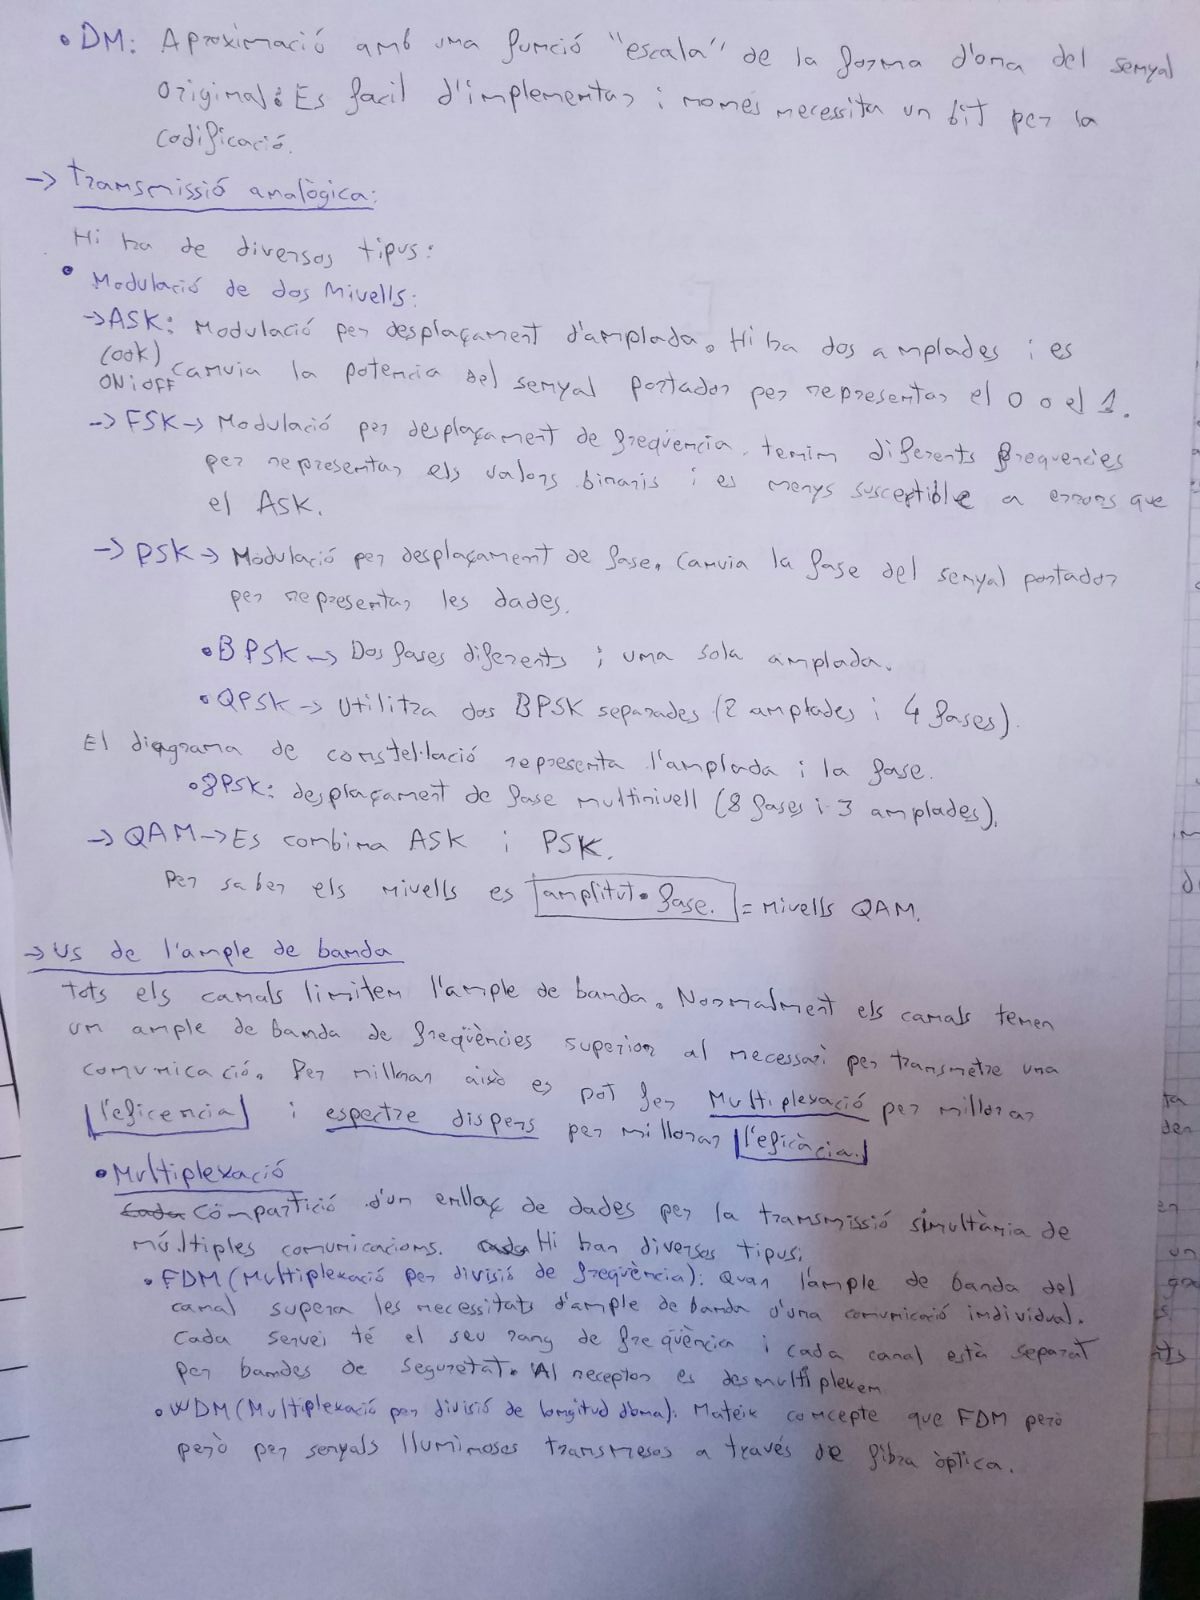 • DM: Aproximació amb una funció "escala" de la forma d'ona del senyal
original. Es facil d'implementar i només necessita un bit per la
codificació.
-> Transmissió analògica:
Hi ha de diversos tipus:
• Modulació de dos nivells:
-> ASK: Modulació per desplaçament d'amplada. Hi ha dos amplades i es
(OOK) canvia la potencia del senyal portador per representar el 0 o el 1.
ON i OFF
-> FSK -> Modulació per desplaçament de freqüencia. tenim diferents frequencies
per representar els valors binaris i es menys susceptible a errors que
el ASK.
-> PSK -> Modulació per desplaçament de fase. Canvia la fase del senyal portador
per representar les dades.
• BPSK -> Dos fases diferents i una sola amplada.
• QPSK -> Utilitza dos BPSK separades (2 amplades i 4 fases).
El diagrama de constel·lació representa l'amplada i la fase.
• 8PSK: desplaçament de fase multinivell (8 fases i 3 amplades).
-> QAM -> Es combina ASK i PSK.
Per saber els nivells es amplitut · fase. = nivells QAM.
-> Us de l'ample de banda
Tots els canals limiten l'ample de banda. Normalment els canals tenen
un ample de banda de freqüències superior al necessari per transmetre una
comunicació. Per millorar això es pot fer Multiplexació per millorar
l'eficencia i espectre dispers per millorar l'eficàcia.
• Multiplexació
Cada Compartició d'un enllaç de dades per la transmissió simultània de
múltiples comunicacions. Cada Hi han diversos tipus:
• FDM (Multiplexació per divisió de freqüència): Quan l'ample de banda del
canal supera les necessitats d'ample de banda d'una comunicació individual.
Cada servei té el seu rang de freqüència i cada canal està separat
per bandes de seguretat. Al receptor es desmultiplexen
• WDM (Multiplexació per divisió de longitud d'ona): Mateix concepte que FDM però
però per senyals lluminoses transmesos a través de fibra òptica.